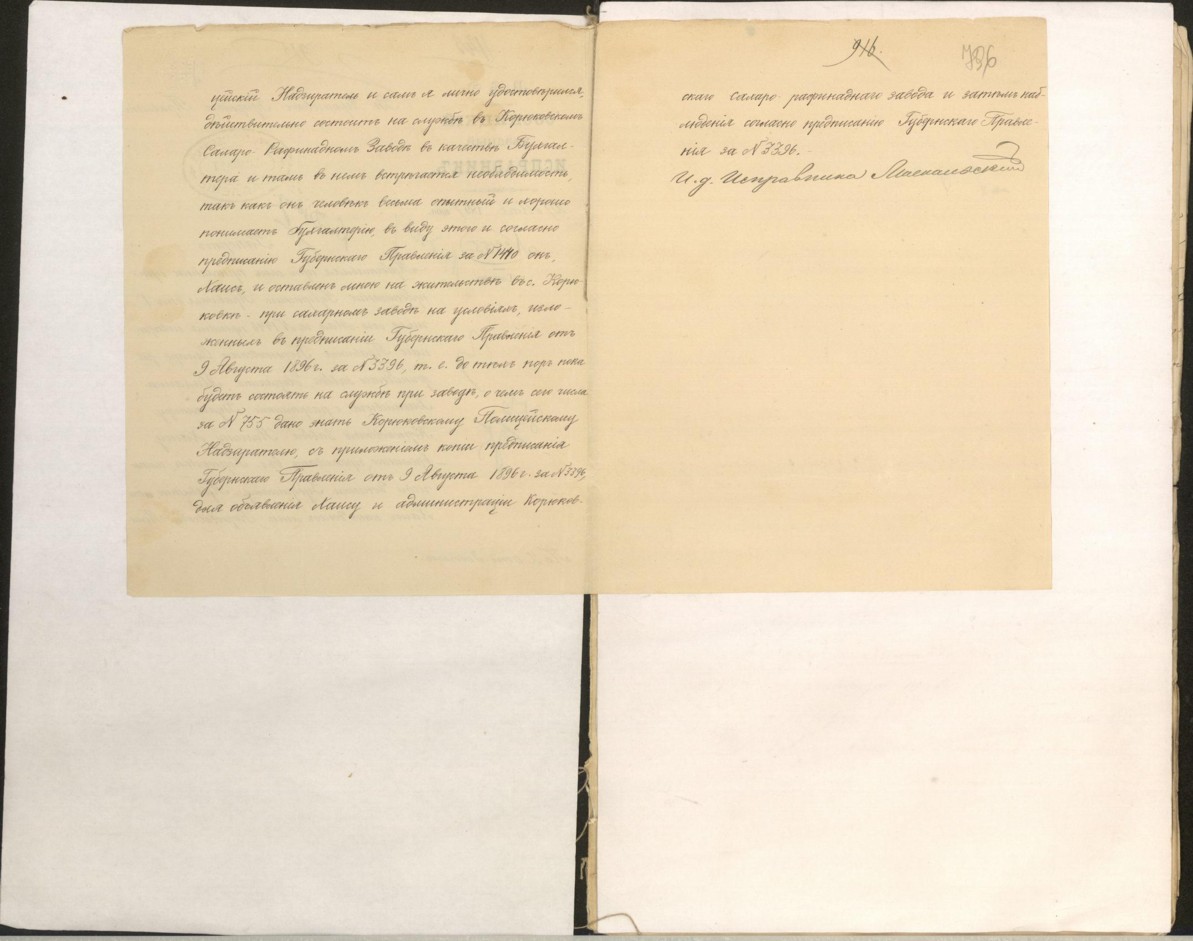 цiйскiй Надзиратель и самъ я лично удостовѣрился,
дѣйствительно состоитъ на службѣ въ Корюковскомъ
Сахаро-Рафинадномъ Заводѣ въ качествѣ Бухгал-
тера и тамъ въ немъ встрѣчается необходимость,
такъ какъ онъ человѣкъ весьма опытный и хорошо
понимаетъ Бухгалтерiю, въ виду этого и согласно
предписанiю Губернскаго Правленiя за № 1440 онъ,
Хаисъ, и оставленъ мною на жительствѣ въ с. Корю-
ковкѣ - при сахарномъ заводѣ на условiяхъ, изло-
женныхъ въ предписанiи Губернскаго Правленiя отъ
9 Августа 1896 г. за № 3396, т. е. до тѣхъ поръ пока
будетъ состоять на службѣ при заводѣ, о чемъ сего числа
за № 755 дано знать Корюковскому Полицейскому
Надзирателю, съ приложенiемъ копiи предписанiя
Губернскаго Правленiя отъ 9 Августа 1896 г. за № 3396,
для объявленiя Хаису и администрацiи Корюков-
916.
736
скаго Сахаро-рафинаднаго завода и затѣмъ наб-
людѣнiя согласно предписанiю Губернскаго Правле-
нiя за № 3396. -
И. д. Исправника
ИСПРАВНИКЪ